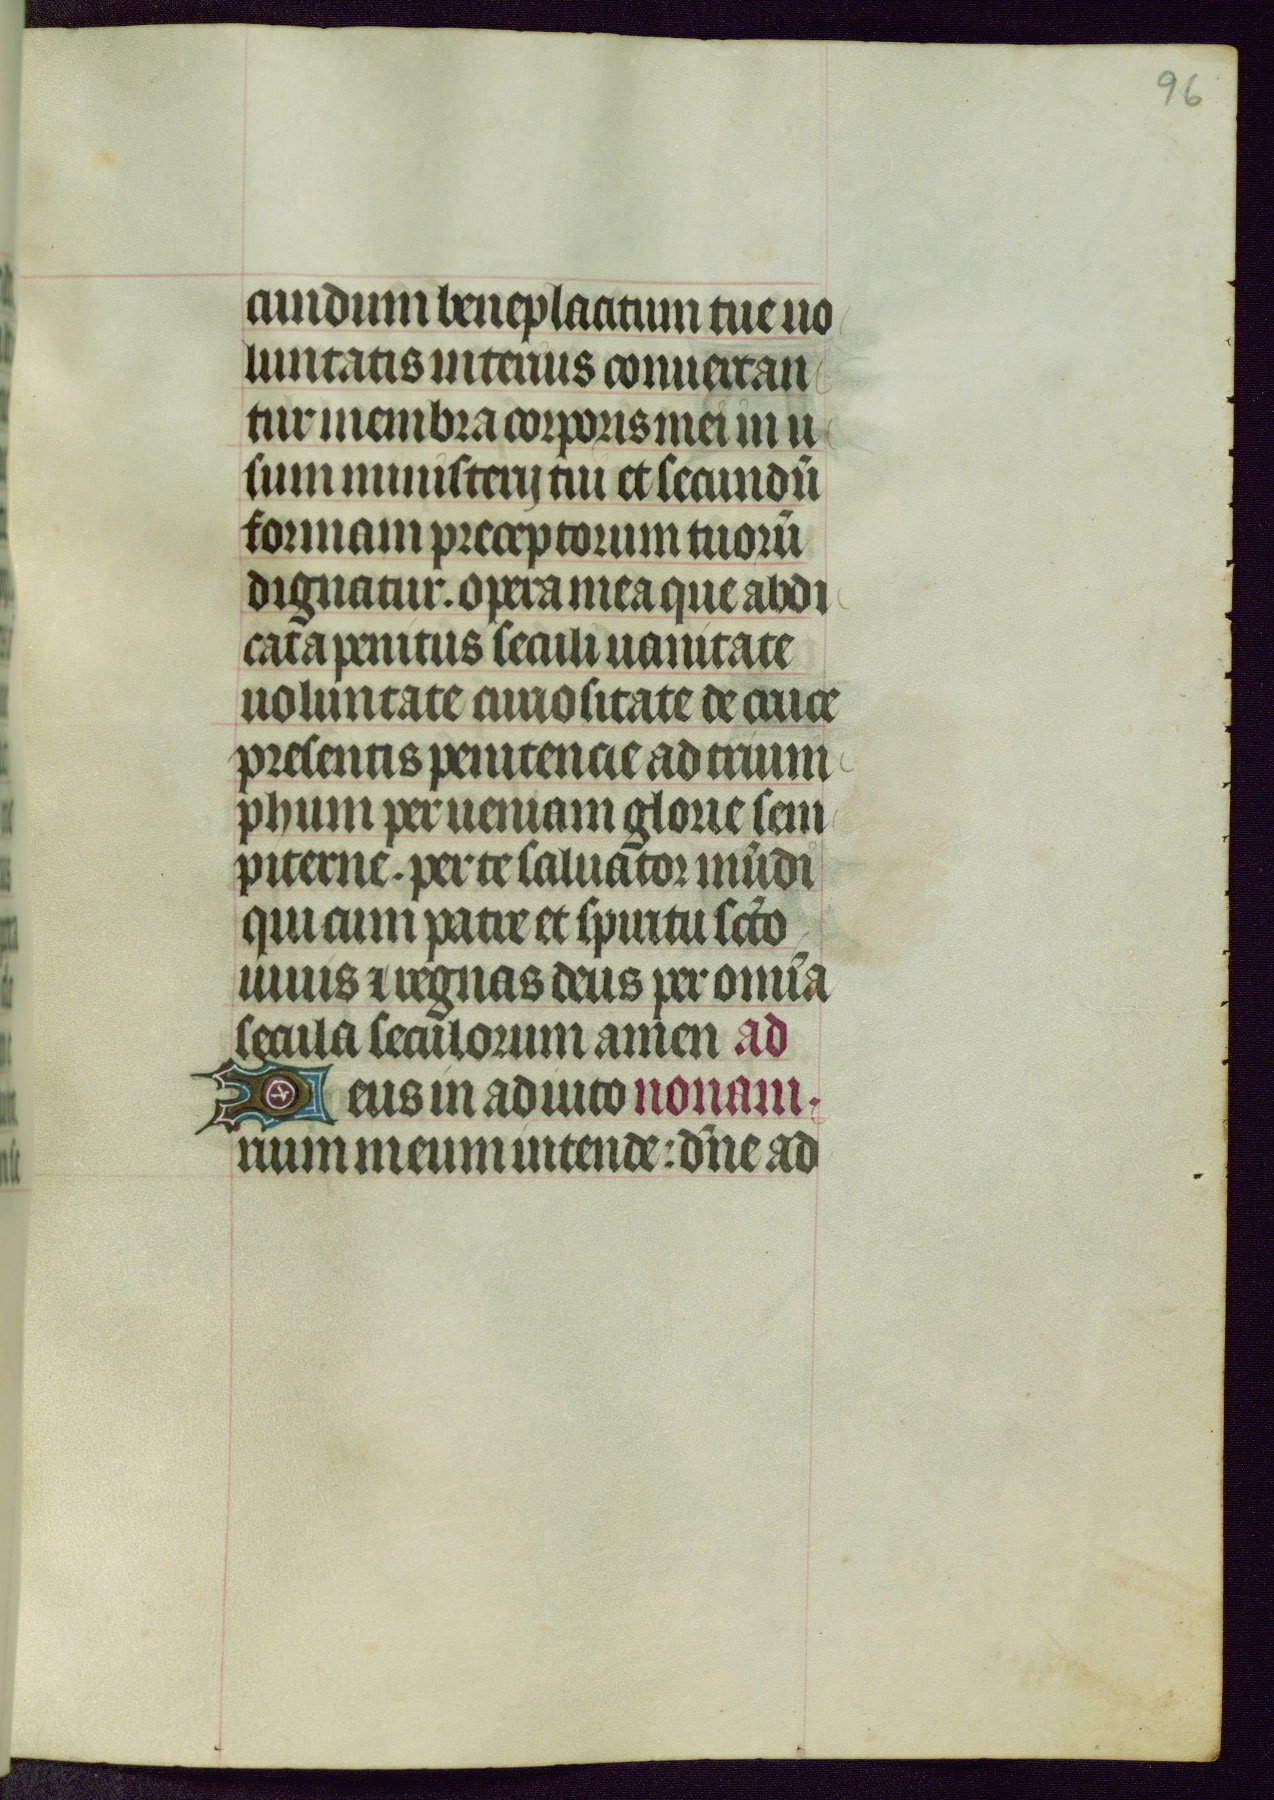 96
cundum beneplacitum tue uo
luntatis interius conuertan
tur membra corporis mei in u
sum ministerij tui et secundū
formam preceptorum tuorū
dignatur. opera mea que abdi
cata penitus seculi uanitate
uoluntate curiositate de cruce
presentis penitencie ad trium
phum perueniam glorie sem
piterne. per te saluator mūdi
qui cum patre et spiritu scto
uiuis ⁊ regnas deus per omīa
secula seculorum amen ad
Deus in adiuto nonam.
rium meum intende: dn̄e ad